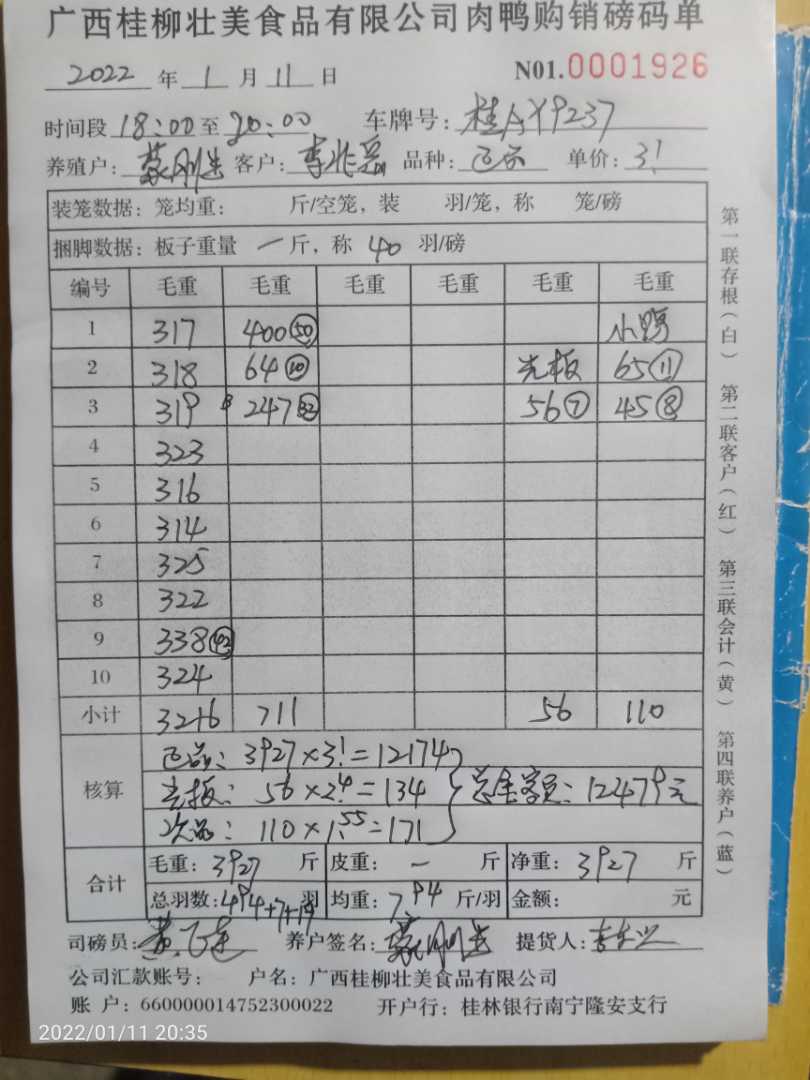 广西桂柳壮美食品有限公司肉鸭购销磅码单
2022 年 1 月 11 日 N01.0001926
时间段 18:00 至 20:00 车牌号: 桂AY9237
养殖户: 客户: 李兆 品种: 正品 单价: 3.1
装笼数据: 笼均重: 斤/空笼, 装 羽/笼, 称 笼/磅
捆脚数据: 板子重量 一 斤, 称 40 羽/磅
编号 毛重 毛重 毛重 毛重 毛重 毛重
1 317 400 50
2 318 64 10 光板 65 11
3 319 247 32 56 7 45 8
4 323
5 316
6 314
7 325
8 322
9 338 42
10 324
小计 3216 711 56 110
核算 正品: 3927×3.1=12174
光板: 56×2.4=134 总金额: 12479元
次品: 110×1.55=171
合计 毛重: 3927 斤 皮重: 一 斤 净重: 3927 斤
总羽数: 494+7+19 羽 均重: 7.94 斤/羽 金额: 元
司磅员: 养户签名: 提货人:
公司汇款账号: 户名: 广西桂柳壮美食品有限公司
账 户: 660000014752300022 开户行: 桂林银行南宁隆安支行
第一联存根(白) 第二联客户(红) 第三联会计(黄) 第四联养户(蓝)
2022/01/11 20:35